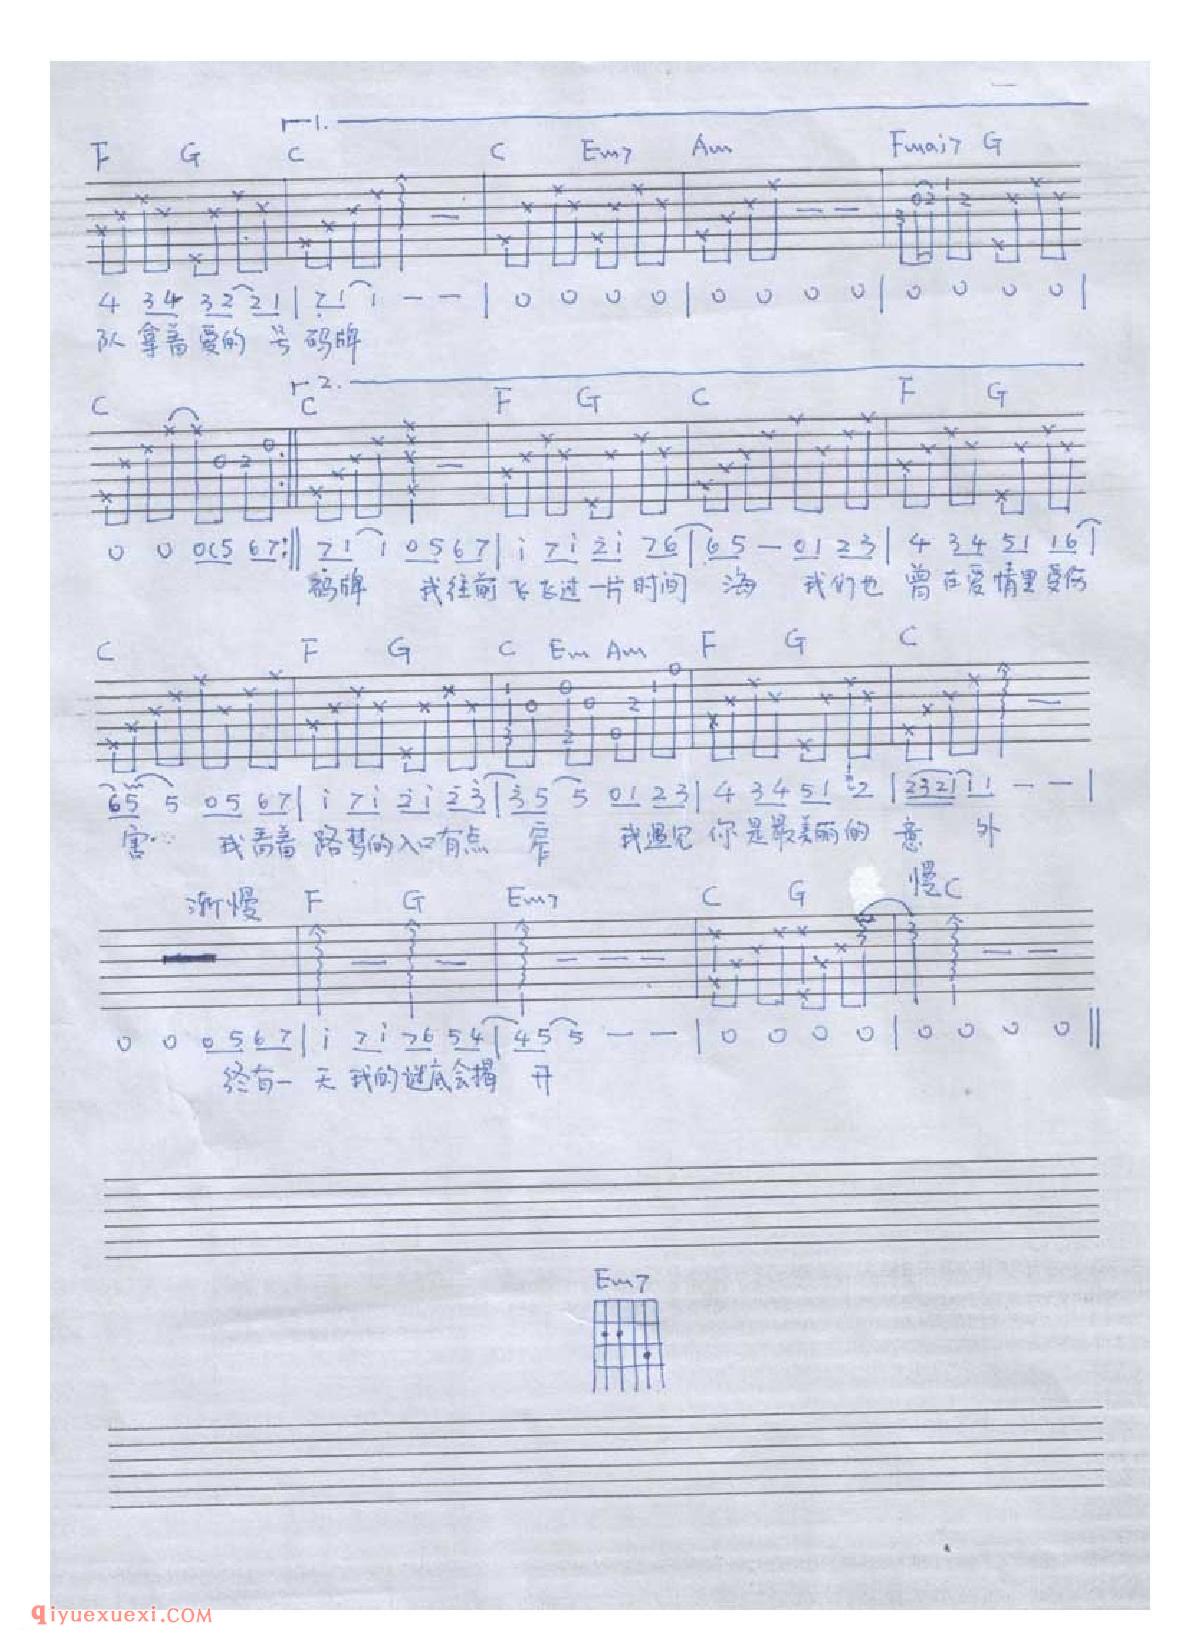 1.
F G C C Em7 Am Fmaj7 G
3 0 2 1 2
4 34 32 21 | 71 i - - | 0 0 0 0 | 0 0 0 0 | 0 0 0 0 |
队 拿着 爱的 号 码牌
2.
C C F G C F G
0 2 0
0 0 0(5 67 :‖ 71 i 05 67 | i 7i 2i 76 | 65 - 01 23 | 4 34 51 16 |
码牌 我往前 飞 飞过 一片 时间 海 我们也 曾在爱情里受伤
C F G C Em Am F G C
1 3 0 0 2 0 0 2 1 0
65 5 05 67 | i 7i 2i 23 | 35 5 01 23 | 4 34 51 2 | 2321 i i - - |
害 我看着 路 梦的入口有点 窄 我遇见 你是最美丽的 意 外
渐慢 F G Em7 C G 慢 C
3 3
0 0 05 67 | i 7i 76 54 | 45 5 - - | 0 0 0 0 | 0 0 0 0 ‖
终有一 天 我的谜底会揭 开
Em7
qiyuexuexi.COM